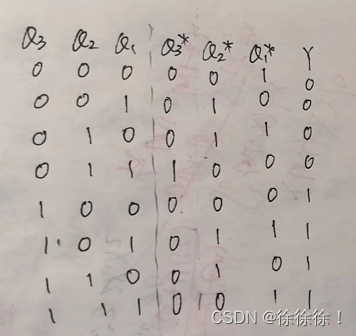 Q3 Q2 Q1 Q3* Q2* Q1* Y
0 0 0 0 0 1 0
0 0 1 0 1 0 0
0 1 0 0 1 1 0
0 1 1 1 0 0 0
1 0 0 0 0 0 1
1 0 1 0 1 1 1
1 1 0 0 1 0 1
1 1 1 0 0 1 1
CSDN @徐徐徐！